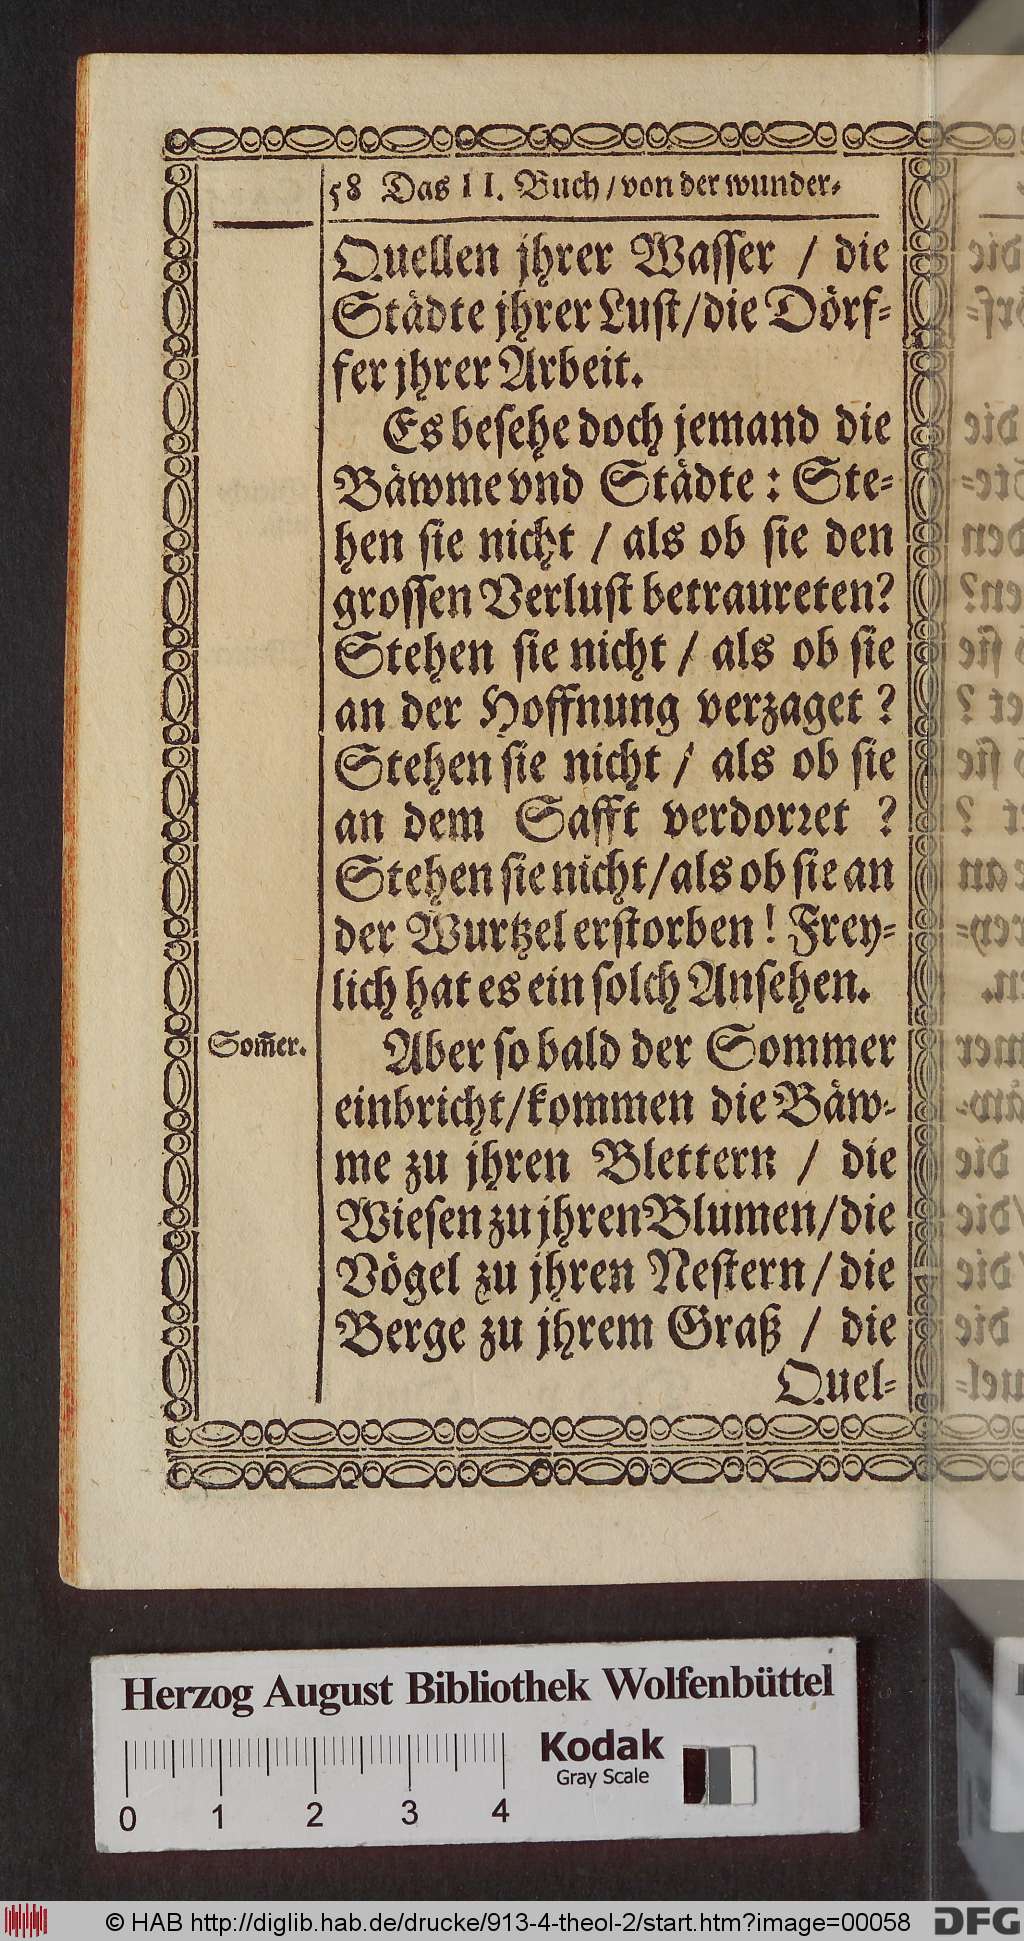 58 Das II. Buch / von der wunder-
Quellen jhrer Wasser / die
Städte jhrer Lust/die Dörf-
fer jhrer Arbeit.
Es besehe doch jemand die
Bäwme vnd Städte : Ste-
hen sie nicht / als ob sie den
grossen Verlust betraureten?
Stehen sie nicht / als ob sie
an der Hoffnung verzaget ?
Stehen sie nicht / als ob sie
an dem Safft verdorret ?
Stehen sie nicht/als ob sie an
der Wurtzel erstorben ! Frey-
lich hat es ein solch Ansehen.
Som̄er.
Aber so bald der Sommer
einbricht/kommen die Bäw-
me zu jhren Blettern / die
Wiesen zu jhren Blumen/die
Vögel zu jhren Nestern/die
Berge zu jhrem Graß / die
Quel-
Herzog August Bibliothek Wolfenbüttel
Kodak
Gray Scale
0 1 2 3 4
© HAB http://diglib.hab.de/drucke/913-4-theol-2/start.htm?image=00058
DFG